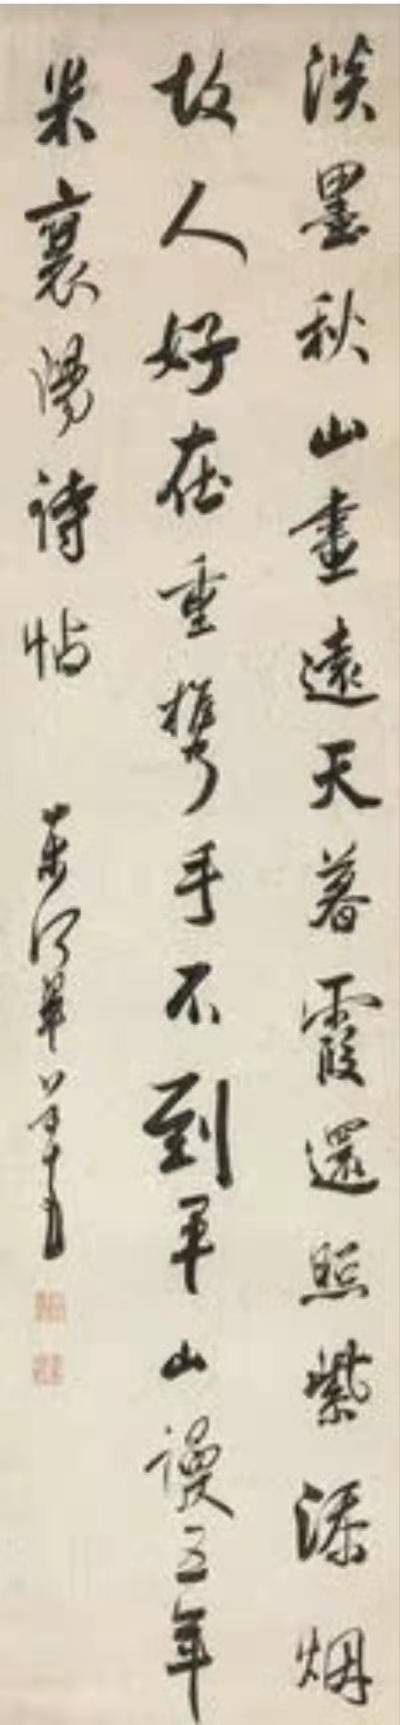 淡墨秋山畫遠天暮霞還照紫添烟
故人好在重携手不到平山謾五年
米襄陽詩帖